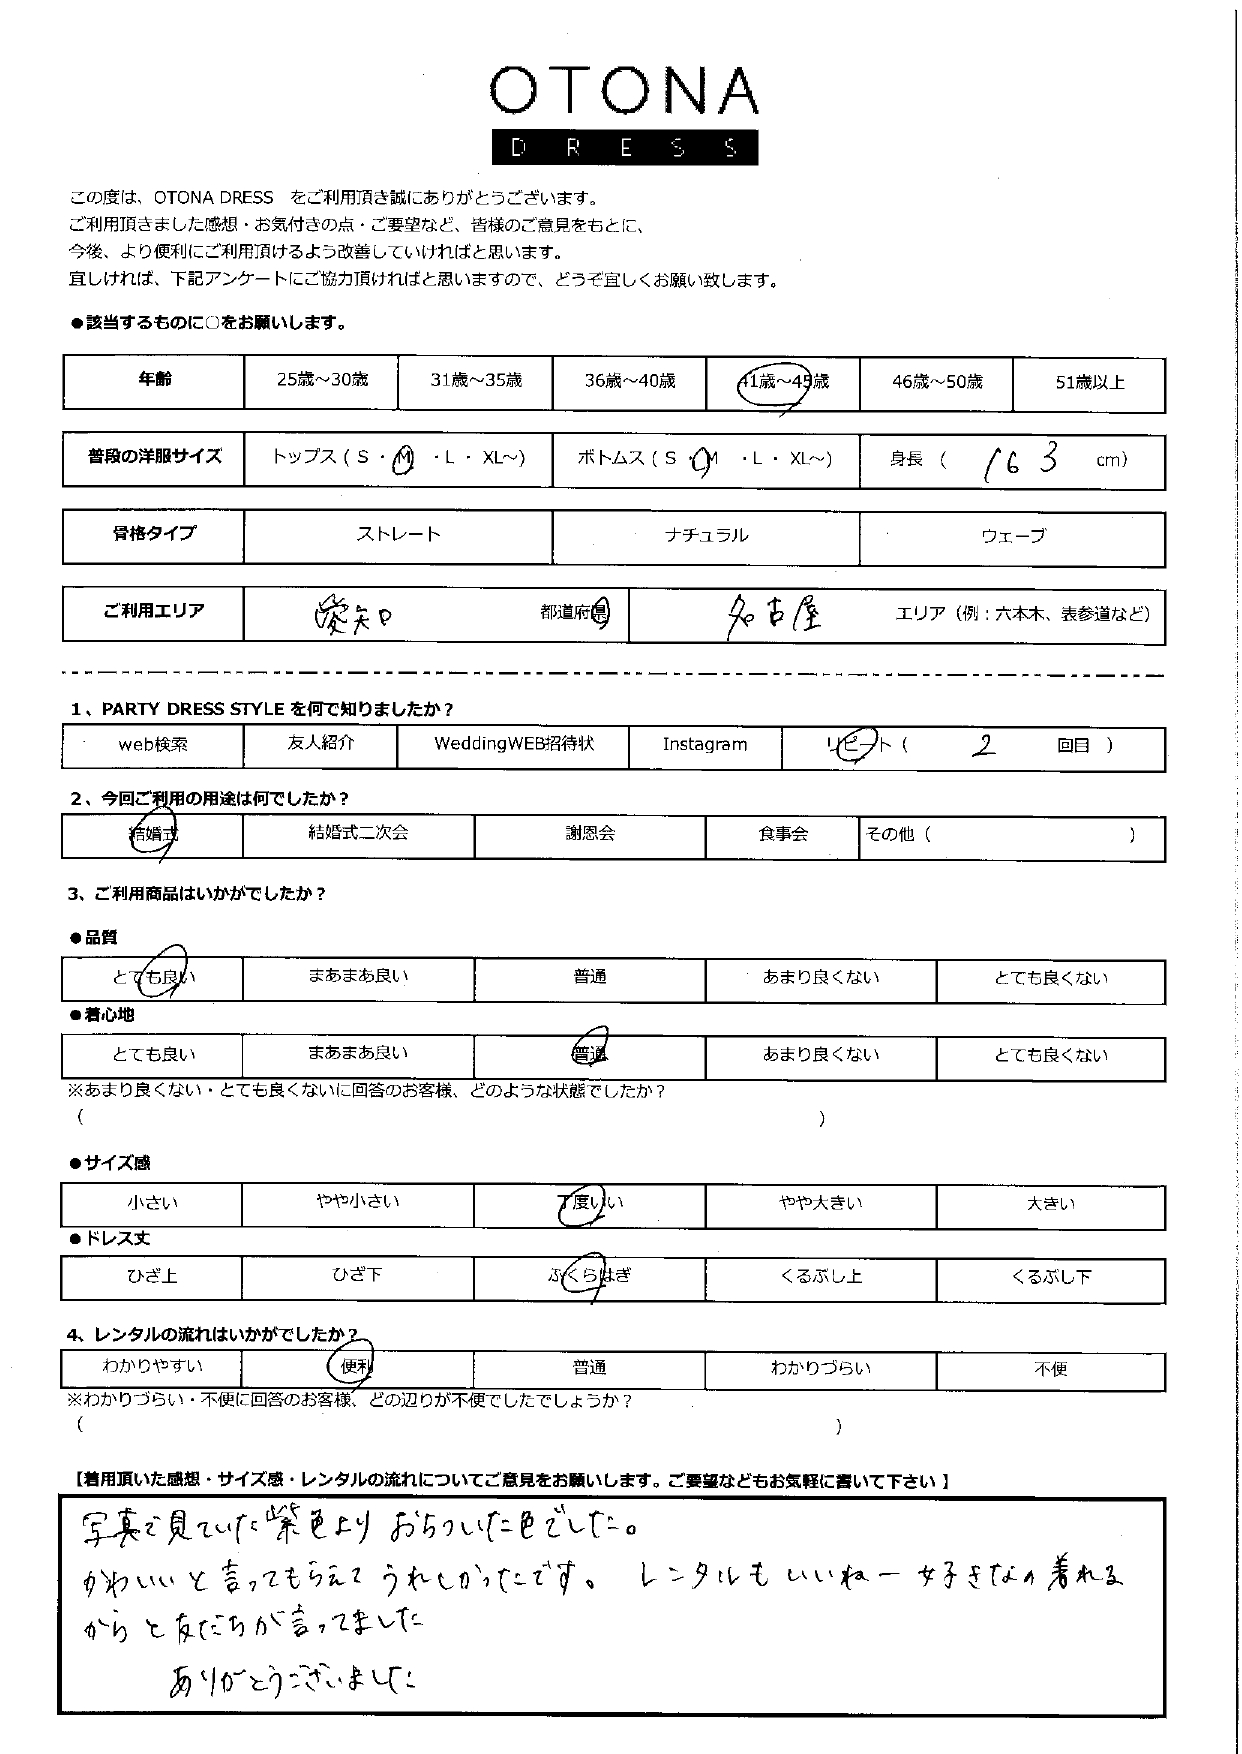 OTONA
DRESS
この度は、OTONA DRESS をご利用頂き誠にありがとうございます。
ご利用頂きました感想・お気付きの点・ご要望など、皆様のご意見をもとに、
今後、より便利にご利用頂けるよう改善していければと思います。
宜しければ、下記アンケートにご協力頂ければと思いますので、どうぞ宜しくお願い致します。
●該当するものに○をお願いします。
年齢 25歳～30歳 31歳～35歳 36歳～40歳 41歳～45歳 46歳～50歳 51歳以上
普段の洋服サイズ トップス ( S ・ M ・L ・ XL～) ボトムス ( S ・ M ・L ・ XL～) 身長 ( 163 cm)
骨格タイプ ストレート ナチュラル ウェーブ
ご利用エリア 愛知 都道府県 名古屋 エリア（例：六本木、表参道など）
1、PARTY DRESS STYLE を何で知りましたか？
web検索 友人紹介 WeddingWEB招待状 Instagram リピート ( 2 回目 )
2、今回ご利用の用途は何でしたか？
結婚式 結婚式二次会 謝恩会 食事会 その他 ( )
3、ご利用商品はいかがでしたか？
●品質
とても良い まあまあ良い 普通 あまり良くない とても良くない
●着心地
とても良い まあまあ良い 普通 あまり良くない とても良くない
※あまり良くない・とても良くないに回答のお客様、どのような状態でしたか？
( )
●サイズ感
小さい やや小さい 丁度いい やや大きい 大きい
●ドレス丈
ひざ上 ひざ下 ふくらはぎ くるぶし上 くるぶし下
4、レンタルの流れはいかがでしたか？
わかりやすい 便利 普通 わかりづらい 不便
※わかりづらい・不便に回答のお客様、どの辺りが不便でしたでしょうか？
( )
【着用頂いた感想・サイズ感・レンタルの流れについてご意見をお願いします。ご要望などもお気軽に書いて下さい】
写真で見ていた紫色より おちついた色でした。
かわいいと言ってもらえてうれしかったです。 レンタルもいいねー 好きなの着れる
からと友だちが言ってました
ありがとうございました